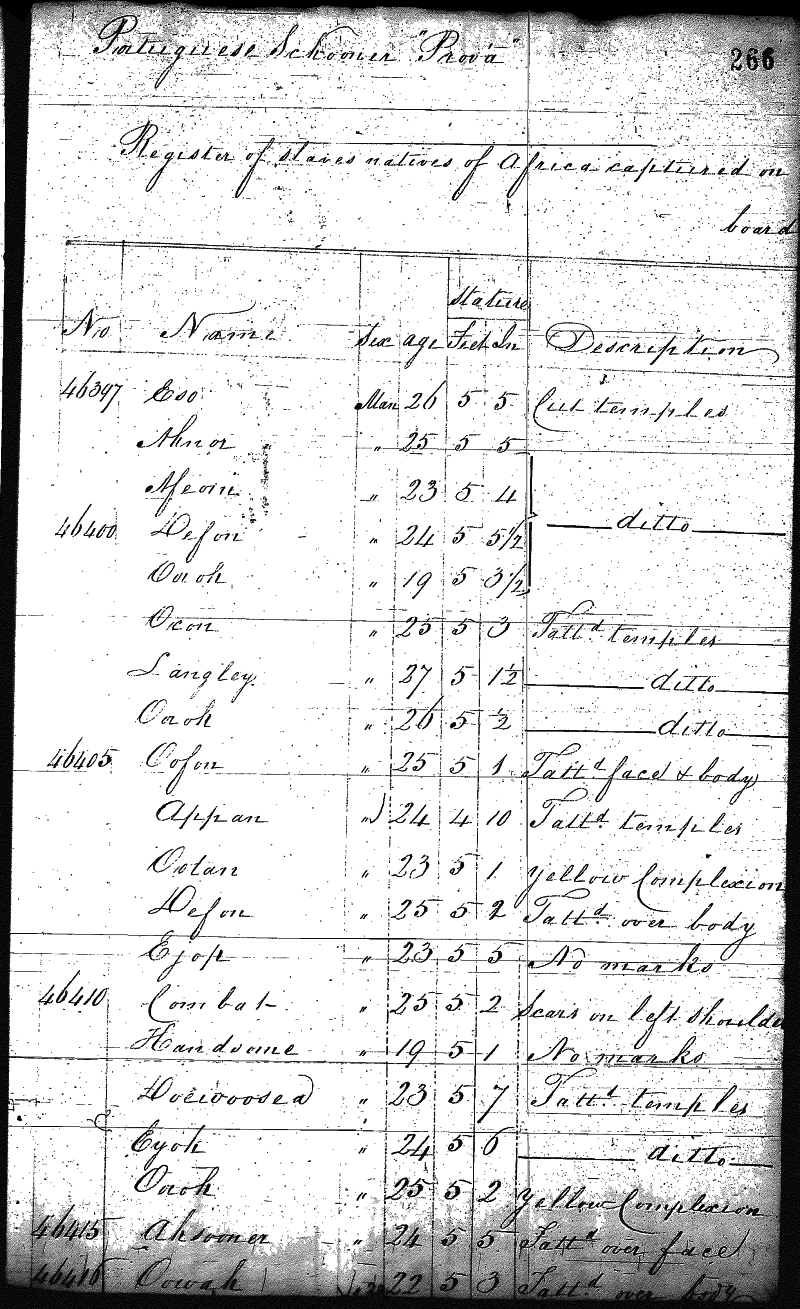 Portuguese Schooner "Prova"
266
Register of slaves natives of Africa captured on
board
Stature
No Name Sex age Feet In Description
46397 Eso Man 26 5 5 Cut temples
Ahnor " 25 5 5
Afeoin " 23 5 4
ditto
46400 Defon " 24 5 5 1/2
Oaoh " 19 5 3 1/2
Ocon " 25 5 3 Tattd temples
Langley " 27 5 1 1/2 ditto
Oaoh " 26 5 1/2 ditto
46405 Oofon " 25 5 1 Tattd face & body
Appan " 24 4 10 Tattd temples
Ootan " 23 5 1 yellow Complexion
Defon " 25 5 2 Tattd over body
Ejop " 23 5 5 No marks
46410 Combat " 25 5 2 Scars on left shoulder
Handsome " 19 5 1 No marks
" 23 5 7 Tattd temples
Eyoh " 24 5 6 ditto
Oaoh " 25 5 2 yellow Complexion
46415 Ahsooner " 24 5 5 Tattd over face
46416 Oowah 22 5 3 Tattd over body